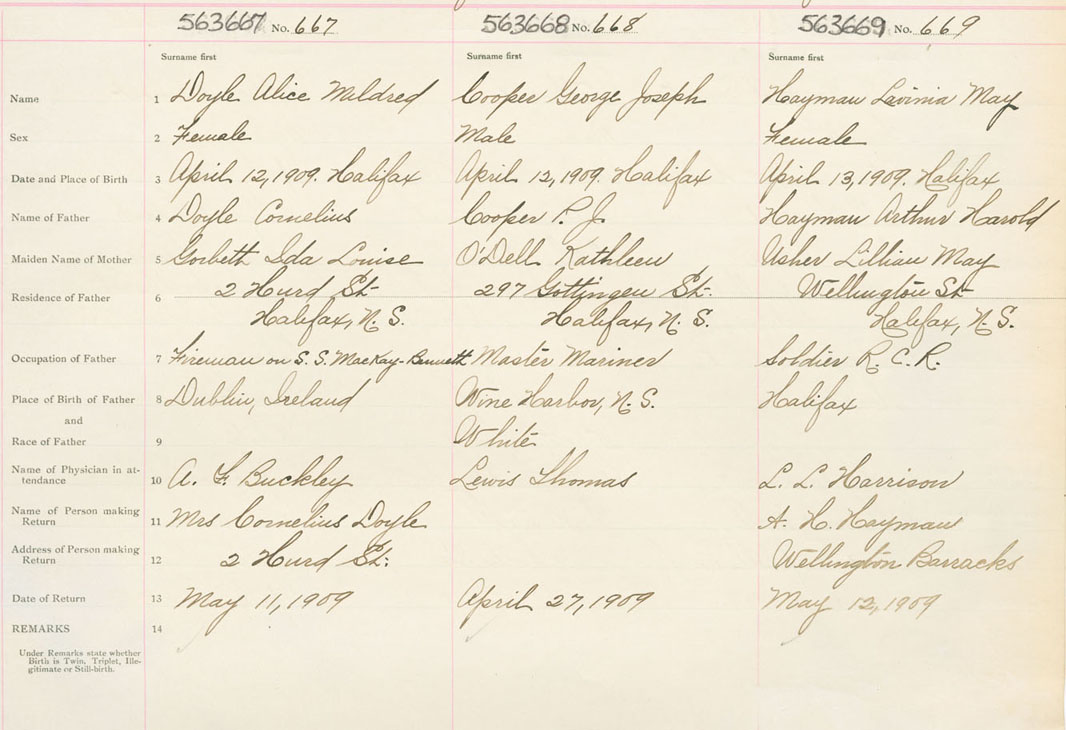 563667 No. 667 563668 No. 668 563669 No. 669
Surname first Surname first Surname first
Name 1 Doyle Alice Mildred Cooper George Joseph Hayman Lavinia May
Sex 2 Female Male Female
Date and Place of Birth 3 April 12, 1909. Halifax April 12, 1909. Halifax April 13, 1909. Halifax
Name of Father 4 Doyle Cornelius Cooper P. J. Hayman Arthur Harold
Maiden Name of Mother 5 Gorbeth Ida Louise O'Dell Kathleen Usher Lillian May
Residence of Father 6 2 Hurd St. 297 Gottingen St. Wellington St
Halifax, N.S. Halifax, N.S. Halifax, N.S.
Occupation of Father 7 Fireman on S.S. MacKay-Bennett Master Mariner Soldier R.C.R.
Place of Birth of Father 8 Dublin, Ireland Wine Harbor, N.S. Halifax
and
Race of Father 9 White
Name of Physician in at-
tendance 10 A. F. Buckley Lewis Thomas L. L. Harrison
Name of Person making
Return 11 Mrs Cornelius Doyle A. H. Hayman
Address of Person making
Return 12 2 Hurd St: Wellington Barracks
Date of Return 13 May 11, 1909 April 27, 1909 May 12, 1909
REMARKS 14
Under Remarks state whether
Birth is Twin, Triplet, Ille-
gitimate or Still-birth.